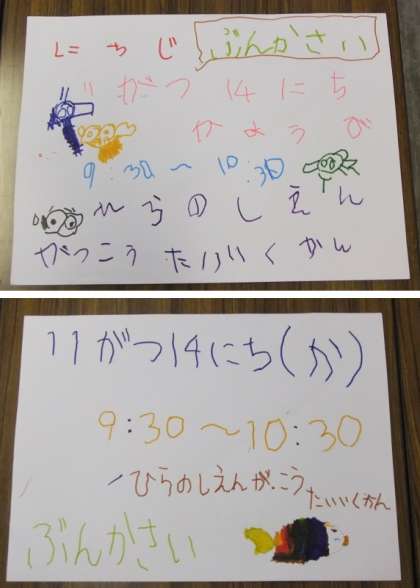 にちじ ぶんかさい
11がつ 14にち
かようび
9:30～10:30
ひらのしえん
がっこう たいいくかん
11がつ14にち(か)
9:30～10:30
ひらのしえんがっこう
たいいくかん
ぶんかさい